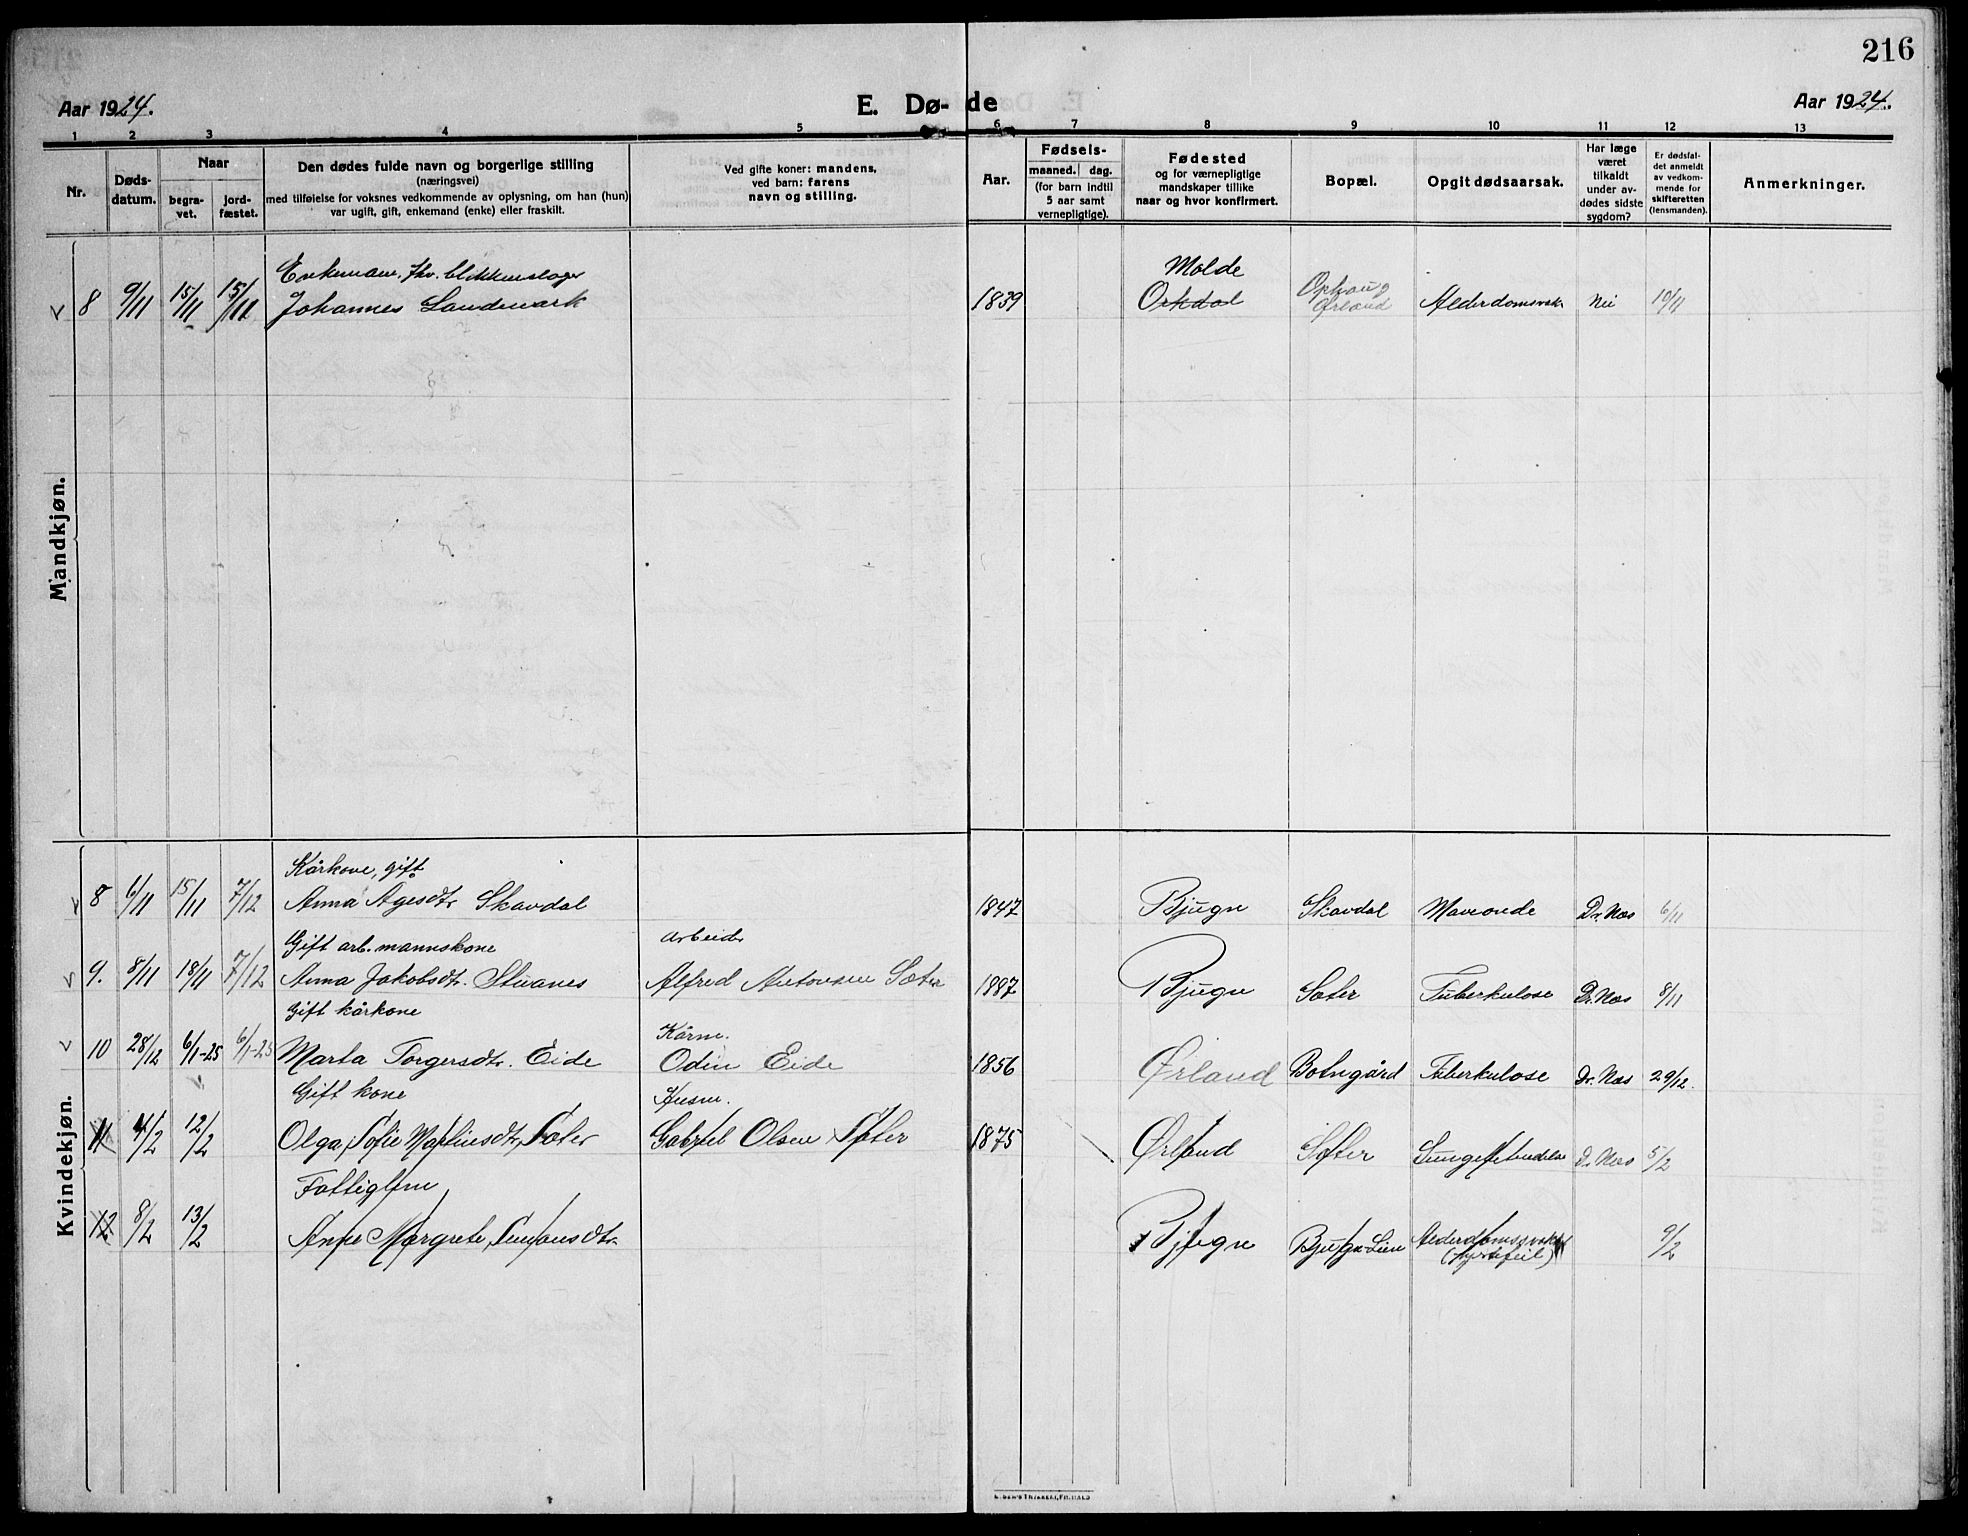 216
Aar 1924.
E. Dø-de
Aar 1924.
1 2 3 4 5 6 7 8 9 10 11 12 13
Nr.
Døds-
datum.
Naar
begra-
vet.
jord-
fæstet.
Den dødes fulde navn og borgerlige stilling
(næringsvei)
med tilføielse for voksnes vedkommende av oplysning, om han (hun)
var ugift, gift, enkemand (enke) eller fraskilt.
Ved gifte koner: mandens,
ved barn: farens
navn og stilling.
Aar.
Fødsels-
maaned. dag.
(for barn indtil
5 aar samt
vernepligtige).
Fødested
og for værnepligtige
mandskaper tillike
naar og hvor konfirmert.
Bopæl.
Opgit dødsaarsak.
Har læge
været
tilkaldt
under av-
dødes sidste
sygdom?
Er dødsfal-
det anmeldt
av vedkom-
mende for
skifteretten
(lensmanden).
Anmerkninger.
Mandkjøn.
Enkemann, fhv. blikkenslager Molde Ophaug
8 9/11 15/11 15/11 Johannes Landmark 1839 Orkdal Ørland Alderdomssvak. Nei 10/11
Kvindekjøn.
Kårkone, gift
8 6/11 15/11 7/12 Anna Agesdtr Skavdal 1847 Bjugn Skavdal Maveonde Dr. Næs 6/11
Gift arb. mannskone Arbeider
9. 8/11 18/11 7/12 Anna Jakobsdtr. Stuanes Alfred Antonsen Sæter 1887 Bjugn Sæter Tuberkulose Dr. Næs 8/11
Gift kårkone Kårm.
10 28/12 6/1-25 6/1-25 Marta Torgersdtr. Eide Odin Eide 1856 Ørland Botngård Tuberkulose Dr. Næs 29/12.
Gift kone Husm.
11 4/2 12/2 Olga Sofie Martinsdtr Sæter Gabriel Olsen Sæter 1875 Ørland Sæter Lungebetendelse Dr. Næs 5/2
Fattiglem
12 8/2 13/2 Anne Margrete Simonsdtr. Bjugn Bjugn-Lien Alderdomssvakhet 9/2
(hjertefeil)